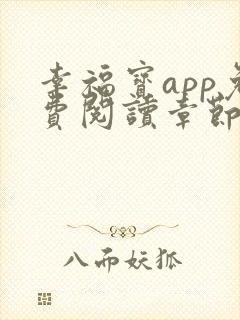 幸福寶app免
費閱讀章節
八而妖狐